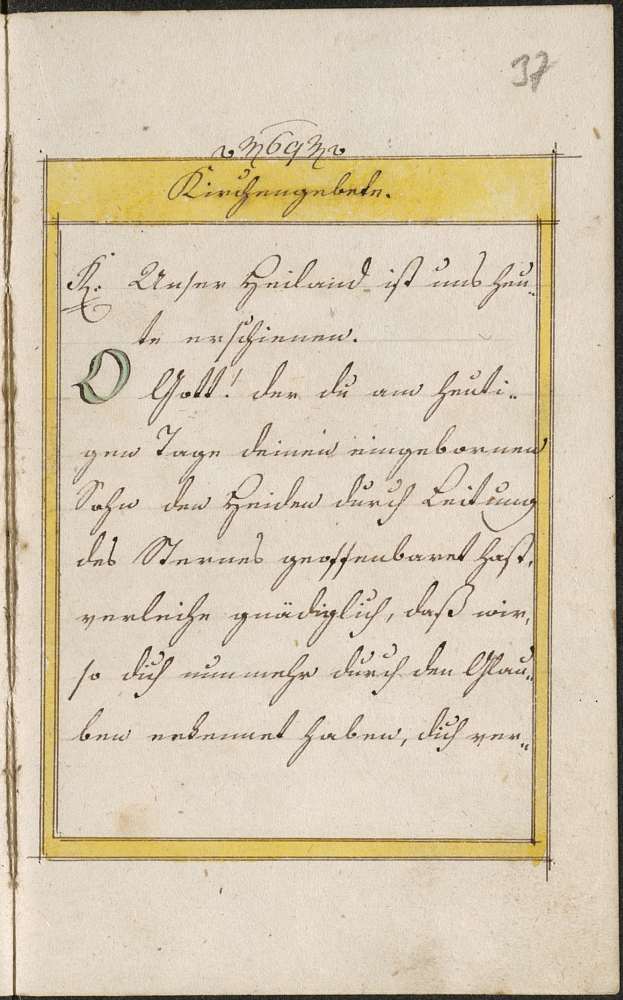 37
69
Kirchengebete.
R. Unser Heiland ist uns heu-
te erschienen.
O Gott! der du am heuti-
gen Tage deinen eingebornen
Sohn den Heiden durch Leitung
des Sternes geoffenbaret hast,
verleihe gnädiglich, daß wir,
so dich nunmehr durch den Glau-
ben erkennet haben, dich ver-